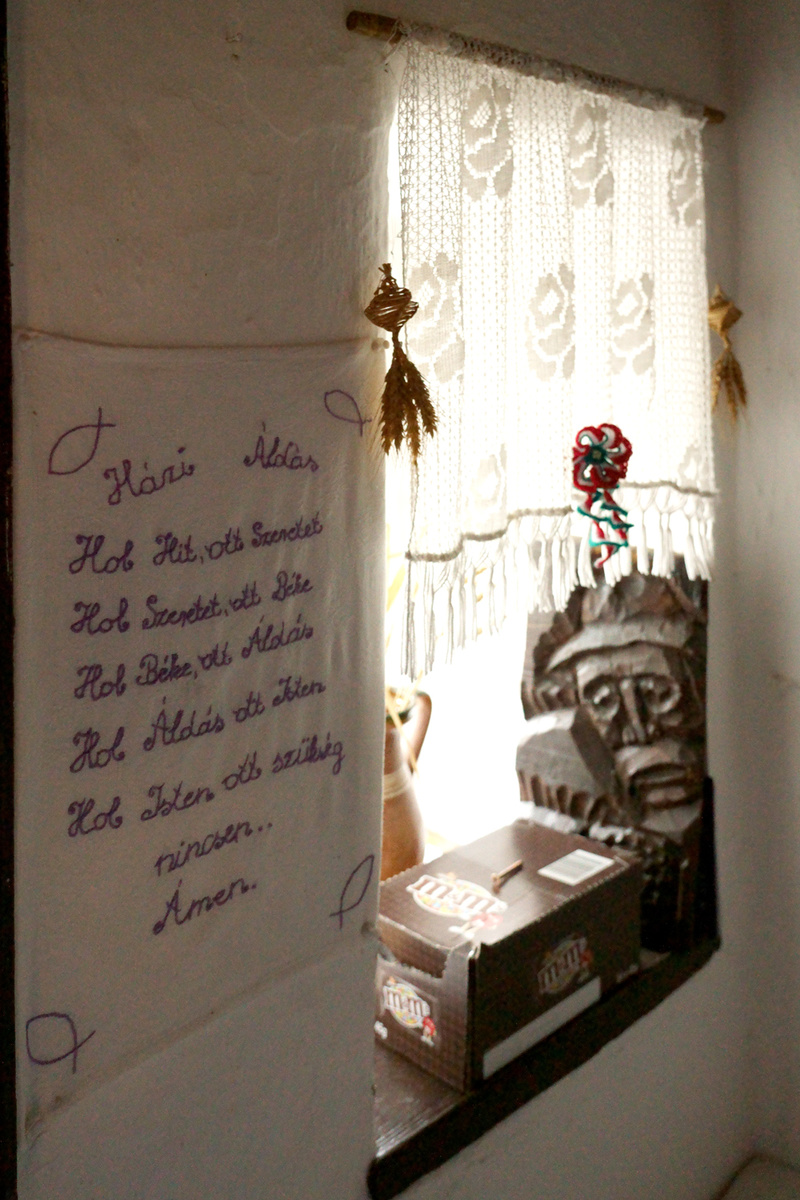 Házi Áldás
Hol Hit, ott Szeretet
Hol Szeretet, ott Béke
Hol Béke, ott Áldás
Hol Áldás ott Isten
Hol Isten ott szükség
nincsen..
Ámen.
m&m's
m&m's
m&m's